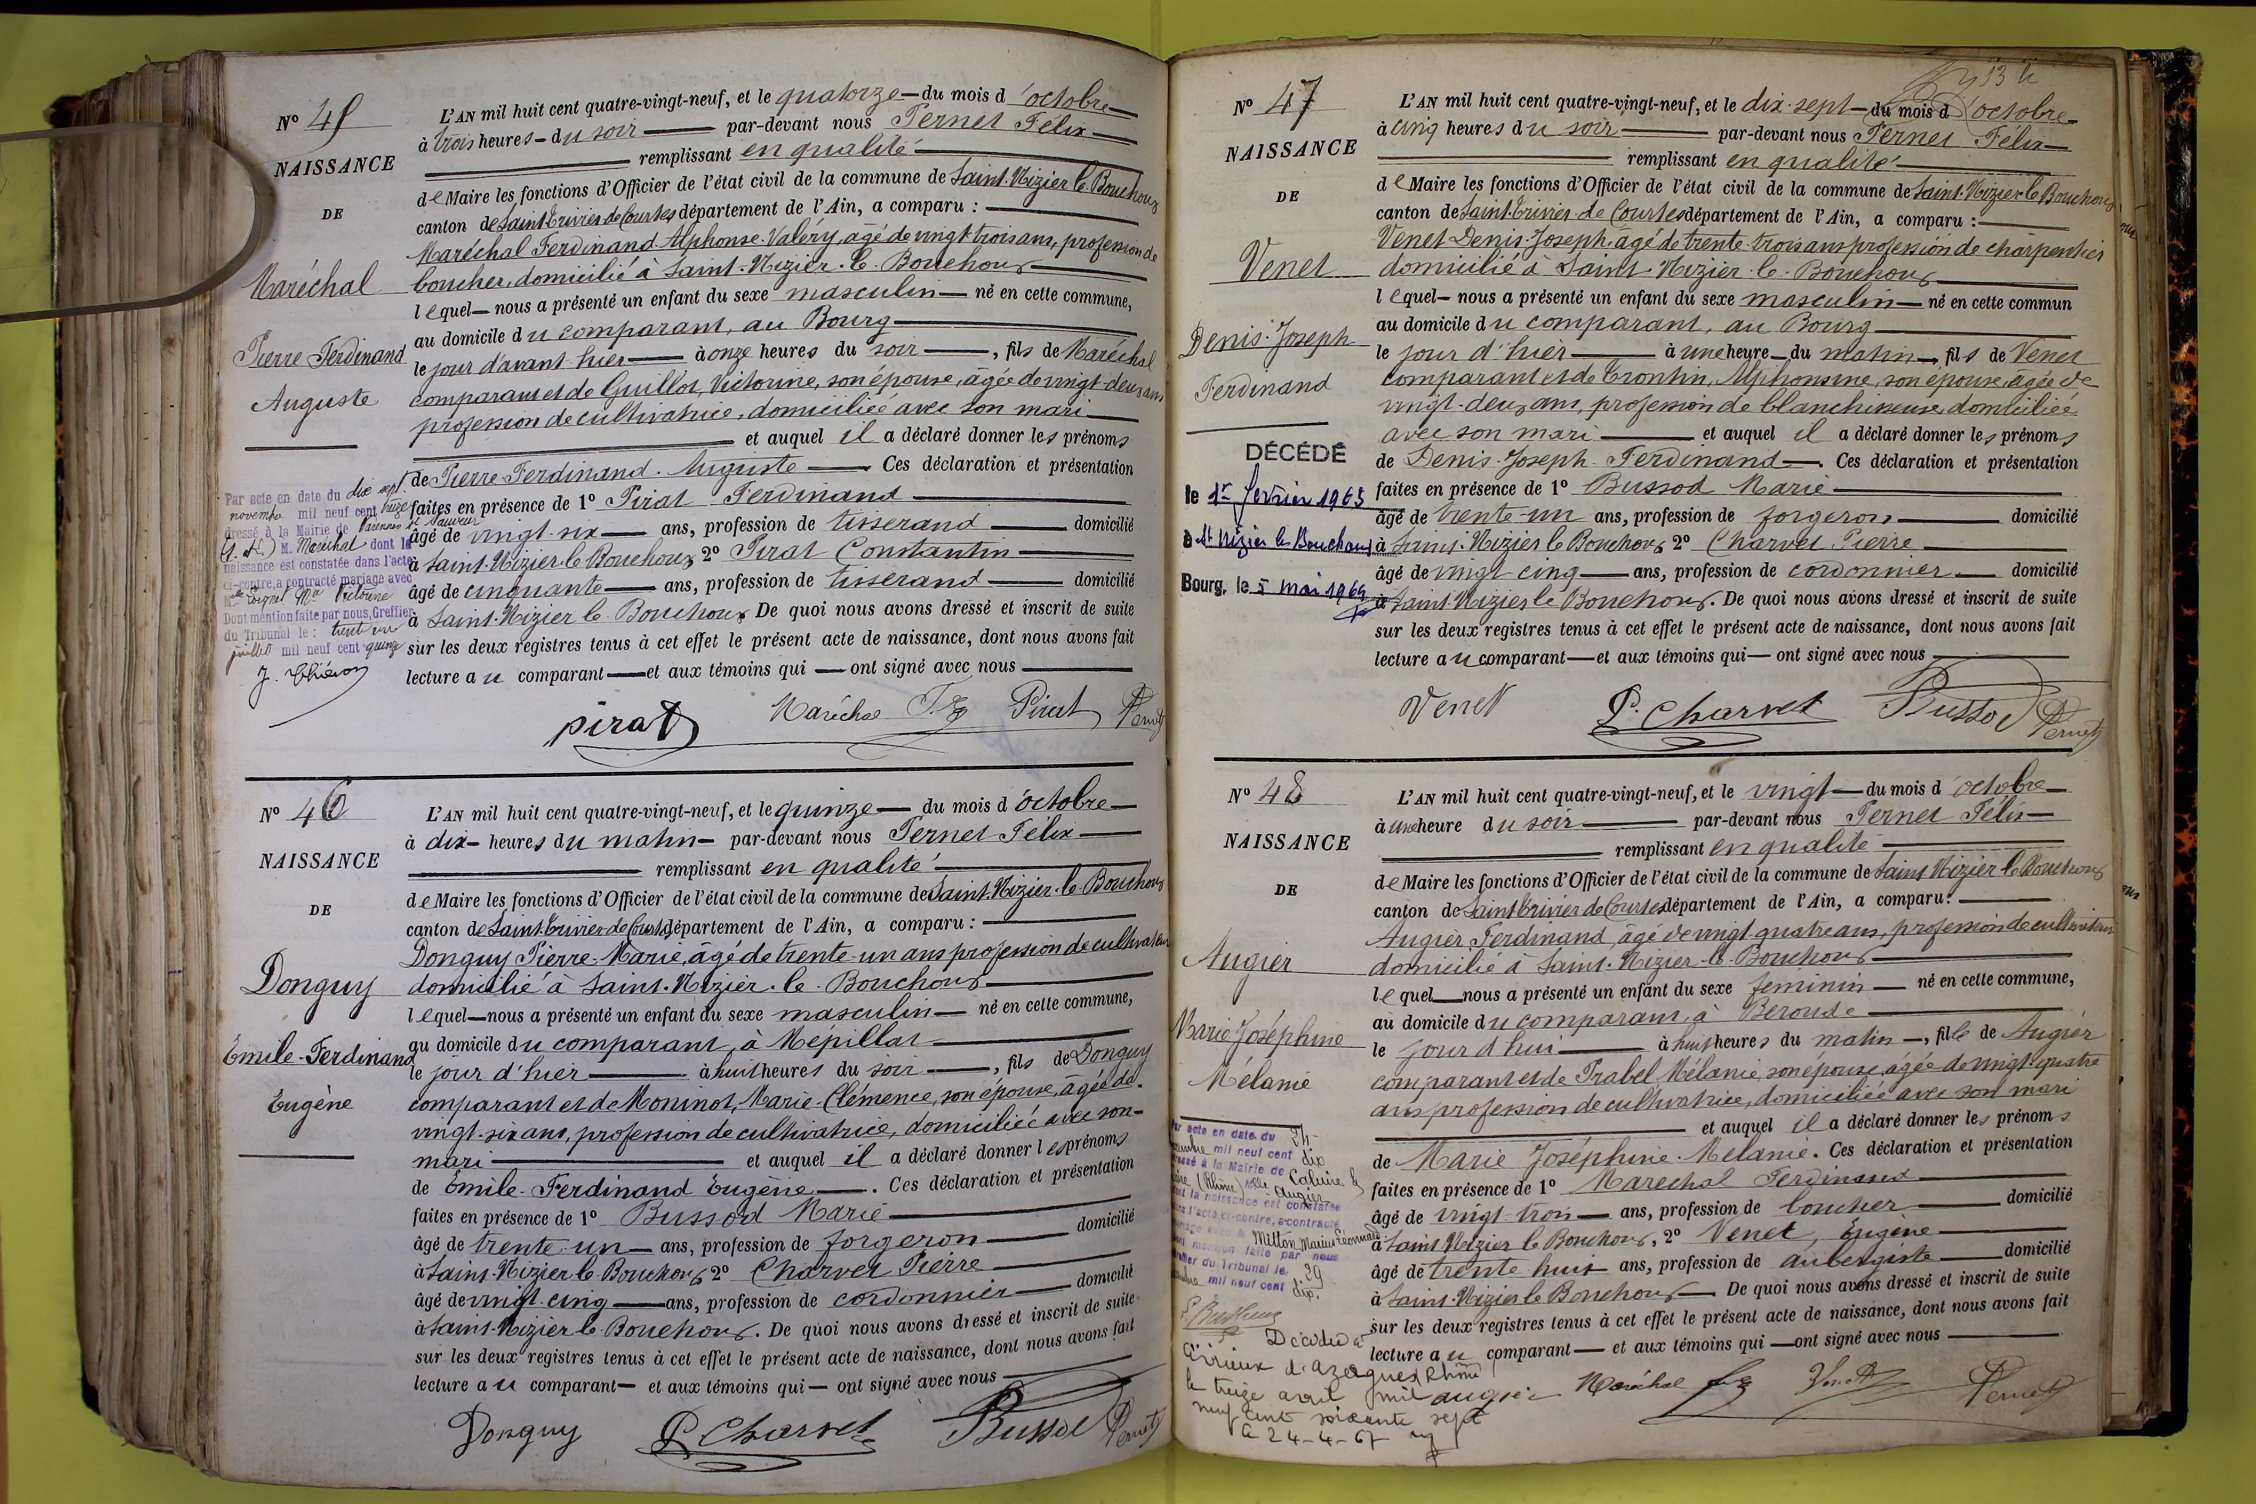 Nº 45
NAISSANCE
DE
Maréchal
Pierre Ferdinand
Auguste
L'AN mil huit cent quatre-vingt-neuf, et le quatorze du mois d'octobre
à trois heures du soir par-devant nous Pernet Félix
remplissant en qualité
de Maire les fonctions d'Officier de l'état civil de la commune de Saint-Nizier-le-Bouchoux
canton de Saint-Trivier-de-Courtes département de l'Ain, a comparu :
Maréchal Ferdinand Alphonse Valéry, âgé de vingt-trois ans, profession de
boucher, domicilié à Saint-Nizier-le-Bouchoux
lequel nous a présenté un enfant du sexe masculin né en cette commune,
au domicile du comparant, au Bourg
le jour d'avant-hier à onze heures du soir, fils de Maréchal
comparant et de Guillot, Victorine, son épouse, âgée de vingt-deux ans
profession de cultivatrice, domiciliée avec son mari
et auquel il a déclaré donner les prénoms
de Pierre Ferdinand Auguste. Ces déclaration et présentation
faites en présence de 1º Pirat Ferdinand
âgé de vingt-six ans, profession de tisserand domicilié
à Saint-Nizier-le-Bouchoux 2º Pirat Constantin
âgé de cinquante ans, profession de tisserand domicilié
à Saint-Nizier-le-Bouchoux. De quoi nous avons dressé et inscrit de suite
sur les deux registres tenus à cet effet le présent acte de naissance, dont nous avons fait
lecture au comparant et aux témoins qui ont signé avec nous
Par acte en date du dix sept
novembre mil neuf cent treize
dressé à la Mairie de Varennes St Sauveur
(S. & L.) M. Maréchal dont la
naissance est constatée dans l'acte
ci-contre, a contracté mariage avec
Mlle Mie Victorine
Dont mention faite par nous, Greffier
du Tribunal le : trente un
juillet mil neuf cent quinze
pirat Maréchal Pirat Pernet
Nº 46
NAISSANCE
DE
Donguy
Émile-Ferdinand
Eugène
L'AN mil huit cent quatre-vingt-neuf, et le quinze du mois d'octobre
à dix heures du matin par-devant nous Pernet Félix
remplissant en qualité
de Maire les fonctions d'Officier de l'état civil de la commune de Saint-Nizier-le-Bouchoux
canton de Saint-Trivier-de-Courtes département de l'Ain, a comparu :
Donguy Pierre-Marie, âgé de trente-un ans profession de cultivateur
domicilié à Saint-Nizier-le-Bouchoux
lequel nous a présenté un enfant du sexe masculin né en cette commune,
au domicile du comparant, à Mépillat
le jour d'hier à huit heures du soir, fils de Donguy
comparant et de Moninot, Marie-Clémence, son épouse, âgée de
vingt-six ans, profession de cultivatrice, domiciliée avec son
mari et auquel il a déclaré donner les prénoms
de Émile-Ferdinand Eugène. Ces déclaration et présentation
faites en présence de 1º Bussod Marie
âgé de trente-un ans, profession de forgeron domicilié
à Saint-Nizier-le-Bouchoux 2º Charvet Pierre
âgé de vingt-cinq ans, profession de cordonnier domicilié
à Saint-Nizier-le-Bouchoux. De quoi nous avons dressé et inscrit de suite
sur les deux registres tenus à cet effet le présent acte de naissance, dont nous avons fait
lecture au comparant et aux témoins qui ont signé avec nous
Donguy P. Charvet Bussod Pernet
Nº 47
NAISSANCE
DE
Venet
Denis-Joseph
Ferdinand
DÉCÉDÉ
le 1er février 1965
à St Nizier le Bouchoux
Bourg, le 5 mai 1969
L'AN mil huit cent quatre-vingt-neuf, et le dix-sept du mois d'octobre
à cinq heures du soir par-devant nous Pernet Félix
remplissant en qualité
de Maire les fonctions d'Officier de l'état civil de la commune de Saint-Nizier-le-Bouchoux
canton de Saint-Trivier-de-Courtes département de l'Ain, a comparu :
Venet Denis-Joseph âgé de trente-trois ans profession de charpentier
domicilié à Saint-Nizier-le-Bouchoux
lequel nous a présenté un enfant du sexe masculin né en cette commun
au domicile du comparant, au Bourg
le jour d'hier à une heure du matin, fils de Venet
comparant et de Trontin, Alphonsine, son épouse, âgée de
vingt-deux ans, profession de blanchisseuse, domiciliée
avec son mari et auquel il a déclaré donner les prénoms
de Denis-Joseph Ferdinand. Ces déclaration et présentation
faites en présence de 1º Bussod Marie
âgé de trente-un ans, profession de forgeron domicilié
à Saint-Nizier le Bouchoux 2º Charvet Pierre
âgé de vingt-cinq ans, profession de cordonnier domicilié
à Saint-Nizier le Bouchoux. De quoi nous avons dressé et inscrit de suite
sur les deux registres tenus à cet effet le présent acte de naissance, dont nous avons fait
lecture au comparant et aux témoins qui ont signé avec nous
Venet P. Charvet Bussod Pernet
Nº 48
NAISSANCE
DE
Augier
Marie Joséphine
Mélanie
L'AN mil huit cent quatre-vingt-neuf, et le vingt du mois d'octobre
à une heure du soir par-devant nous Pernet Félix
remplissant en qualité
de Maire les fonctions d'Officier de l'état civil de la commune de Saint Nizier le Bouchoux
canton de Saint Trivier de Courtes département de l'Ain, a comparu :
Augier Ferdinand, âgé de vingt-quatre ans, profession de cultivateur
domicilié à Saint-Nizier-le-Bouchoux
lequel nous a présenté un enfant du sexe féminin né en cette commune,
au domicile du comparant, à Béroude
le jour d'hui à huit heures du matin, fille de Augier
comparant et de Prabel Mélanie, son épouse, âgée de vingt-quatre
ans profession de cultivatrice, domiciliée avec son mari
et auquel il a déclaré donner les prénoms
de Marie Joséphine Mélanie. Ces déclaration et présentation
faites en présence de 1º Maréchal Ferdinand
âgé de vingt-trois ans, profession de boucher domicilié
à Saint-Nizier le Bouchoux, 2º Venet, Eugène
âgé de trente-huit ans, profession de aubergiste domicilié
à Saint-Nizier le Bouchoux De quoi nous avons dressé et inscrit de suite
sur les deux registres tenus à cet effet le présent acte de naissance, dont nous avons fait
lecture au comparant et aux témoins qui ont signé avec nous
acte en date du
mil neuf cent dix
à la Mairie de Caluire &
(Rhône) Mlle Augier
la naissance est constatée
l'acte ci-contre, a contracté
Mitton Marius Léonnard
mention faite par nous
du Tribunal le 29
mil neuf cent dix.
Décédée à
d'Azergues (Rhône)
le treize avril mil
neuf cent soixante sept
le 24-4-67
augier Maréchal Venet Pernet